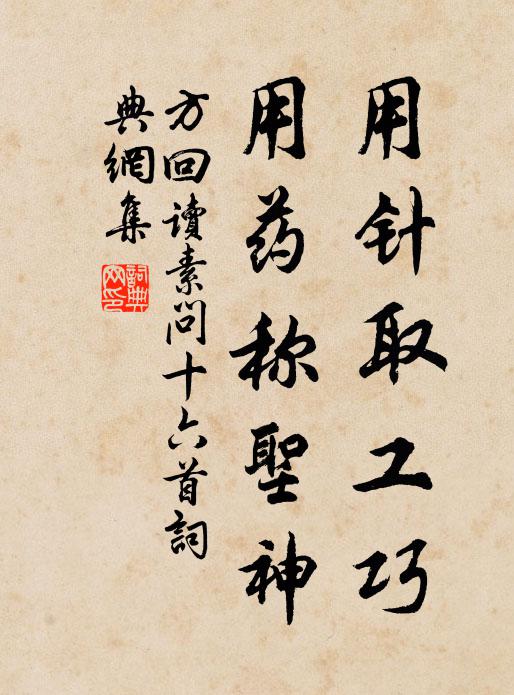 用针取工巧
用药称聖神
方回讀素問十六首詞
典網集
詞典网印